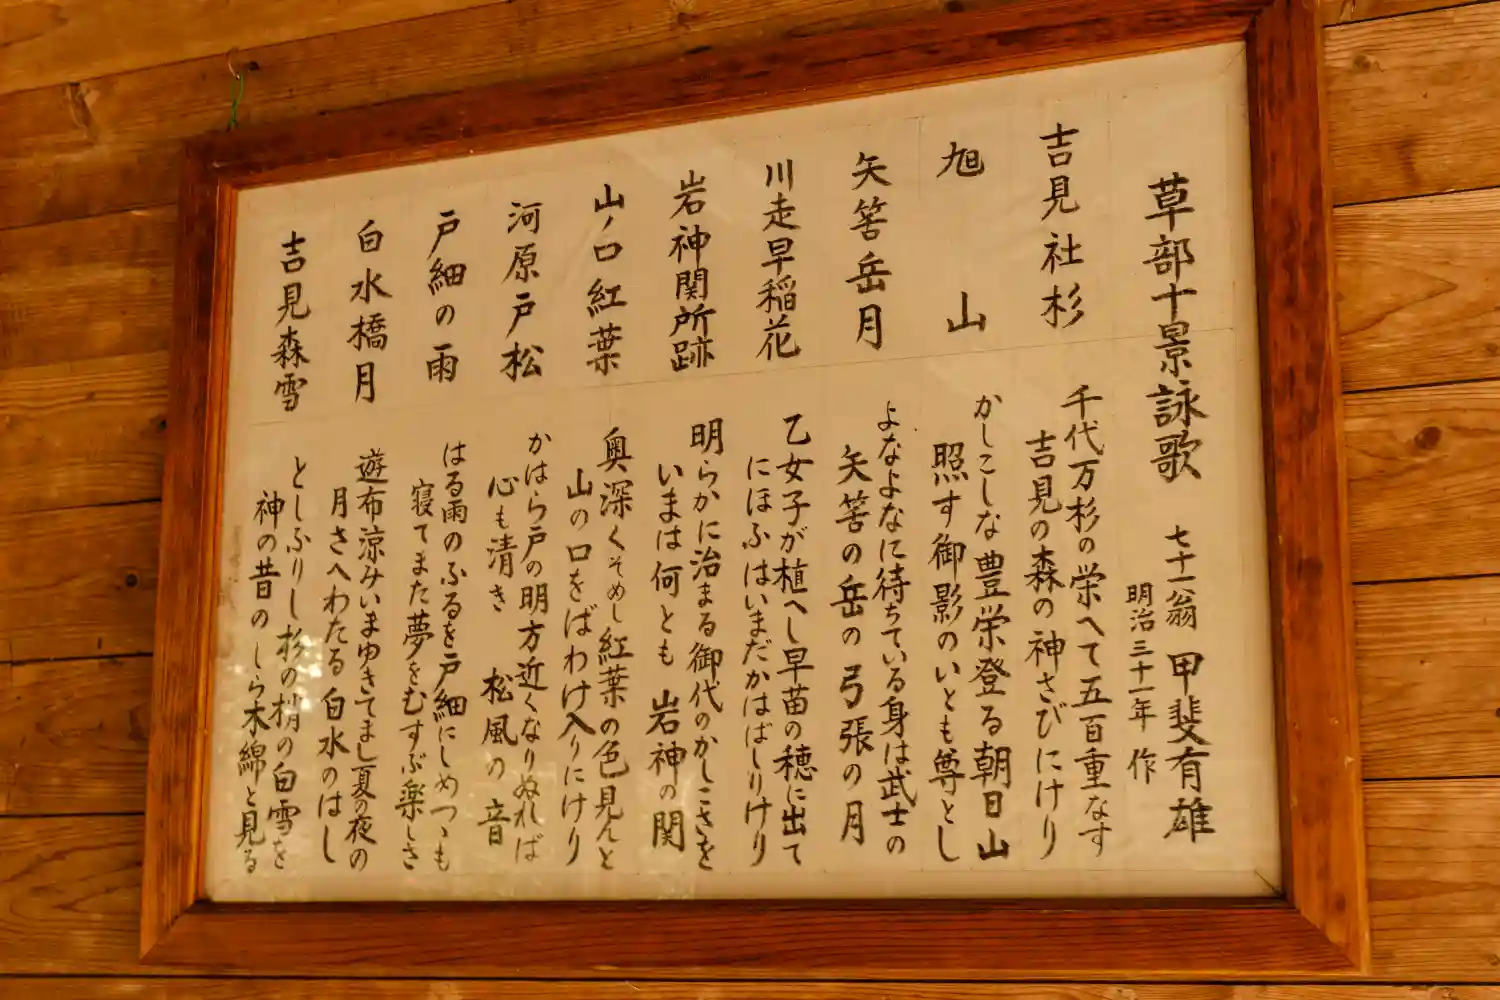 草部十景詠歌 七十一翁 甲斐有雄
明治三十一年 作
吉見社杉
千代万杉の栄へて五百重なす
吉見の森の神さびにけり
旭山
かしこしな豊栄登る朝日山
照す御影のいとも尊とし
矢筈岳月
よなよなに待ちている身は武士の
矢筈の岳の弓張の月
川走早稲花
乙女子が植へし早苗の穂に出て
にほふはいまだかはばしりけり
岩神関所跡
明らかに治まる御代のかしこさを
いまは何とも 岩神の関
山ノ口紅葉
奥深くそめし紅葉の色見んと
山の口をばわけ入りにけり
河原戸松
かはら戸の明方近くなりぬれば
心も清き 松風の音
戸細の雨
はる雨のふるを戸細にしめつゝも
寝てまた夢をむすぶ楽しさ
白水橋月
遊布涼みいまゆきてまし夏の夜の
月さへわたる白水のはし
吉見森雪
としふりし杉の梢の白雪を
神の昔のしら木綿と見る